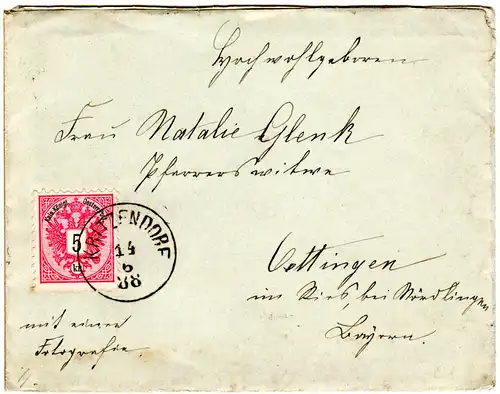 Hochwohlgeboren
Frau Natalie Glenk
Pfarrerswitwe
Kais. Königl. Oesterr. Post
5
kr.
KRITZENDORF
14
6
88
Oettingen
im Ries, bei Nördlingen
Bayern.
mit einer
Fotografie